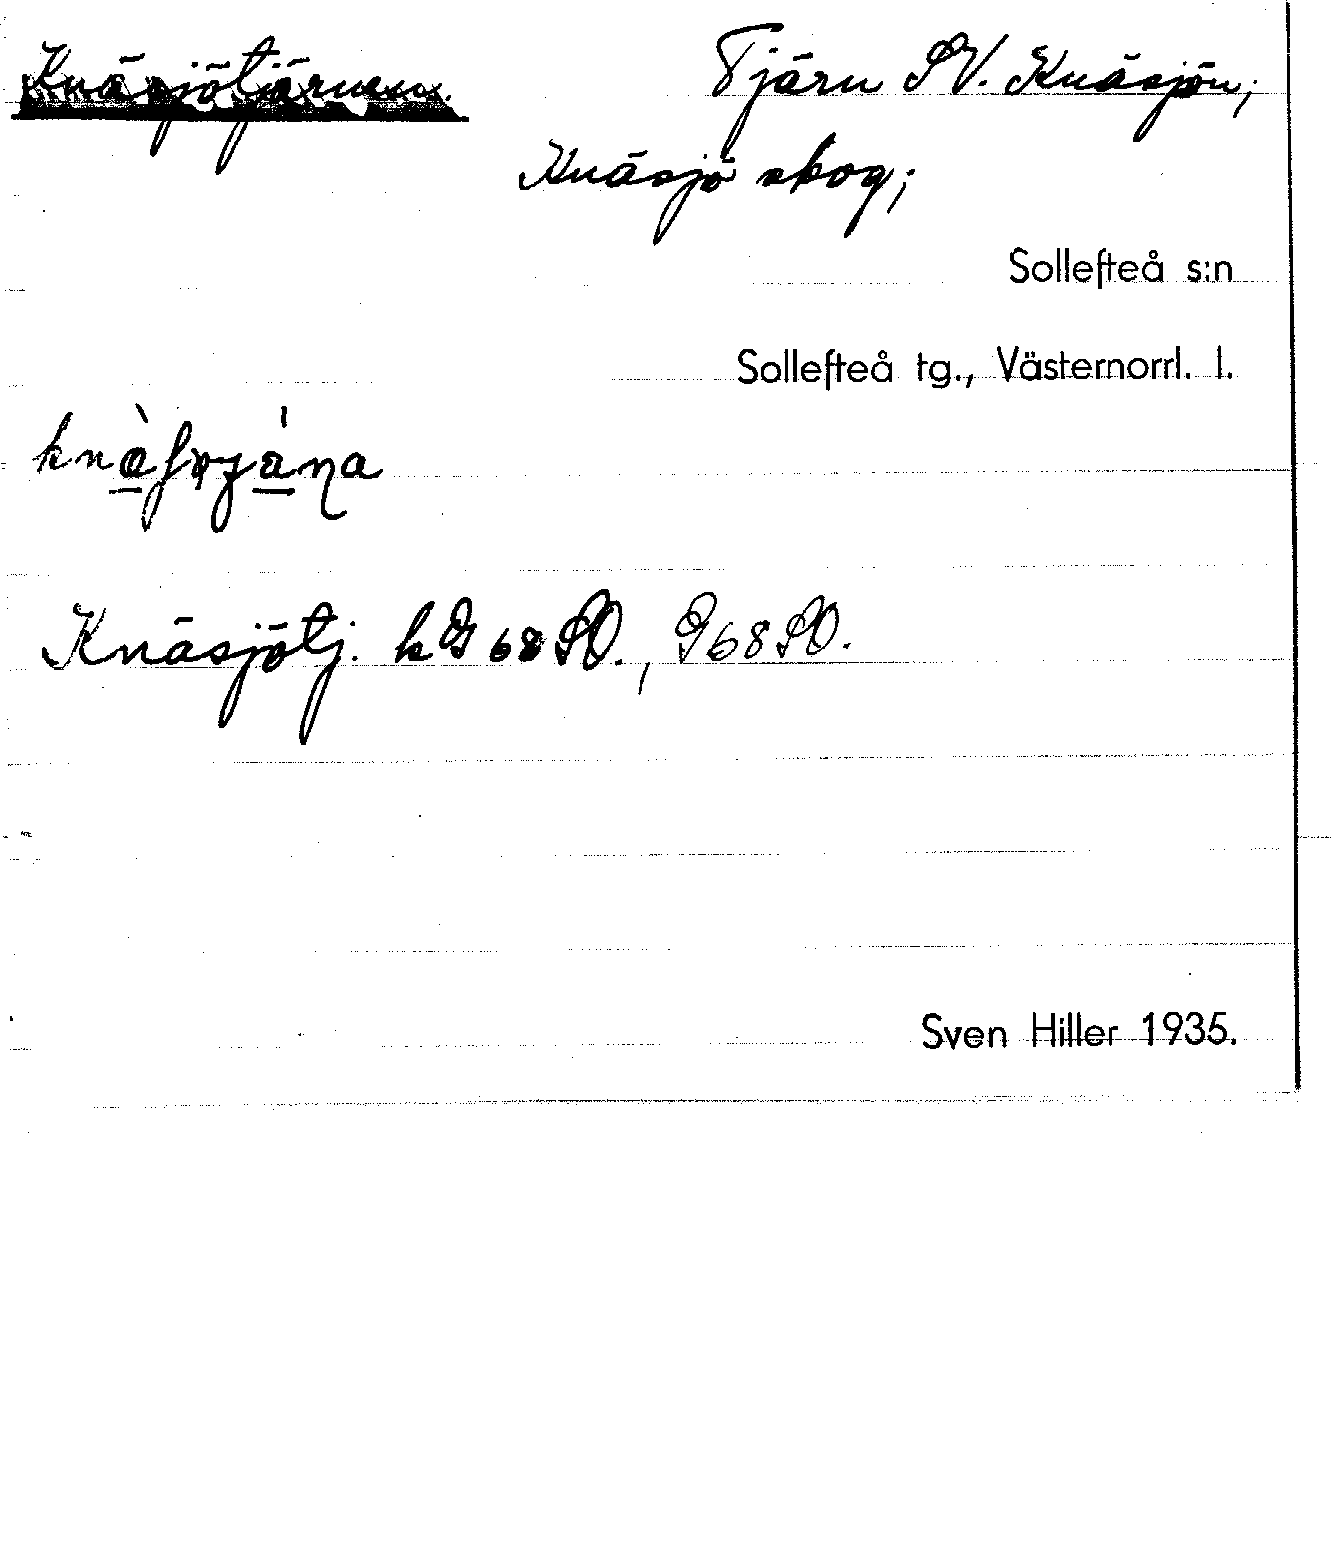 Knäsjötjärnen. Tjärn SV. Knäsjön;
Knäsjö skog;
Sollefteå s:n
Sollefteå tg., Västernorrl. l.
Knäsjötj. k G 68 SO., G 68 SO.
Sven Hiller 1935.